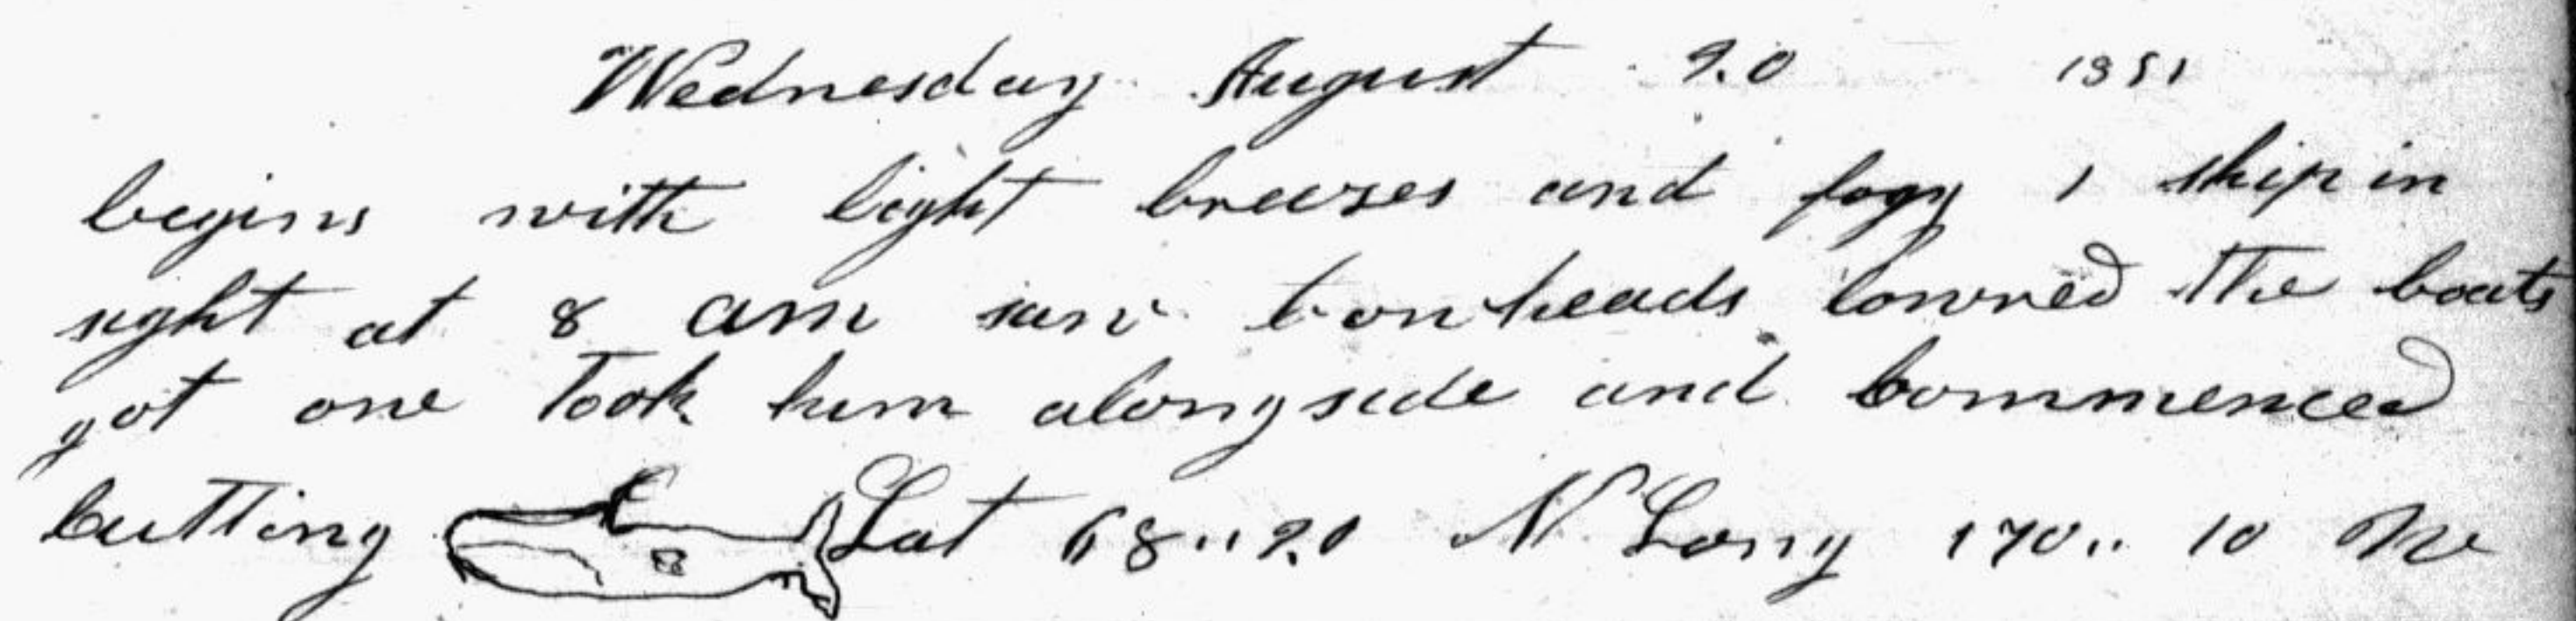 Wednesday August 20 1851
begins with light breezes and fogy 1 ship in
sight at 8 am saw bowheads lowred the boats
got one Took him alongside and Commenced
Cutting Lat 68..20 N Long 170.. 10 W